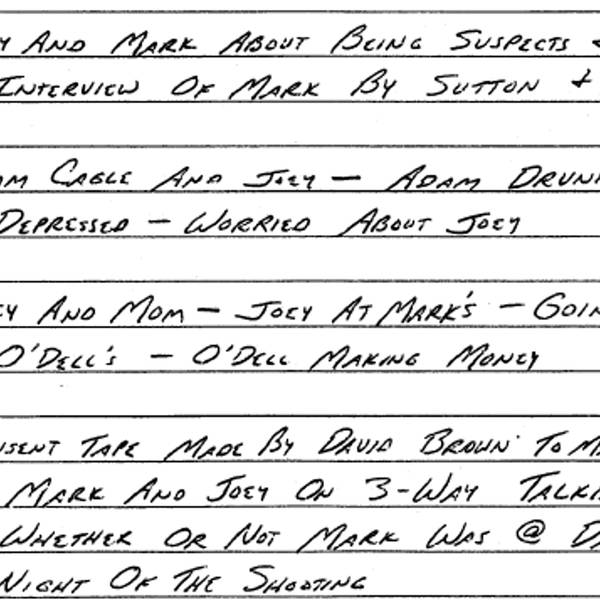 And Mark About Being Suspects
Interview Of Mark By Sutton &
Cagle And Joey — Adam
Depressed — Worried About Joey
And Mom — Joey At Mark's —
O'Dell's — O'Dell Making Money
Tape Made By David Brown To
Mark And Joey On 3-Way
Whether Or Not Mark Was @
Night Of The Shooting